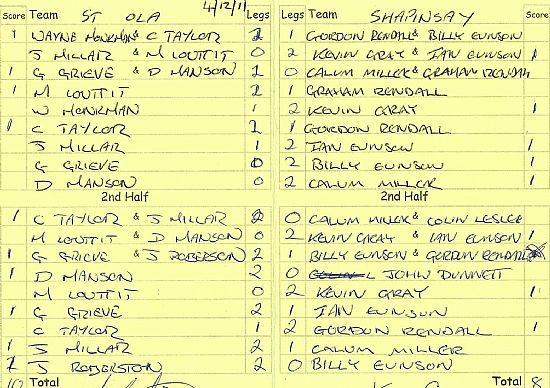 Score Team ST OLA 4/12/11 Legs Legs Team SHAPINSAY Score
1 WAYNE MONKMAN & C TAYLOR 2 1 GORDON RENDALL & BILLY EUNSON
J MILLAR & M LOUTTIT 0 2 KEVIN GRAY & IAN EUNSON 1
1 G GRIEVE & D MANSON 2 0 CALUM MILLER & GRAHAM RENDALL
1 M LOUTTIT 2 1 GRAHAM RENDALL
W MONKMAN 1 2 KEVIN GRAY 1
1 C TAYLOR 2 1 GORDON RENDALL
J MILLAR 1 2 IAN EUNSON 1
G GRIEVE 0 2 BILLY EUNSON 1
D MANSON 0 2 CALUM MILLER 1
2nd Half 2nd Half
1 C TAYLOR & J MILLAR 2 0 CALUM MILLER & COLIN LESLIE
M LOUTTIT & D MANSON 0 2 KEVIN GRAY & IAN EUNSON 1
1 G GRIEVE & J ROBERSON 2 1 BILLY EUNSON & GORDON RENDALL
1 D MANSON 2 0 JOHN DUNNETT
M LOUTTIT 0 2 KEVIN GRAY 1
1 G GRIEVE 2 1 IAN EUNSON
C TAYLOR 1 2 GORDON RENDALL 1
1 J MILLAR 2 1 CALUM MILLER
1 J ROBERSTON 2 0 BILLY EUNSON
10 Total Total 8